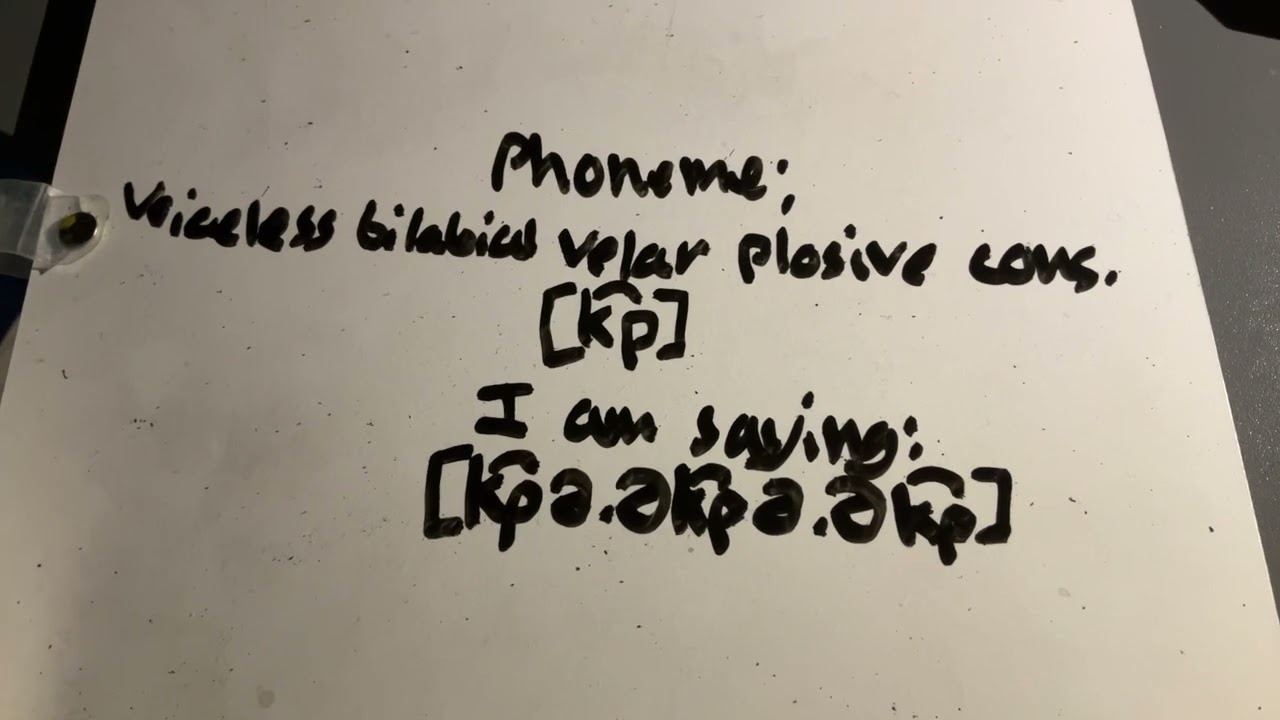 Phoneme:
Voiceless bilabial velar plosive cons.
[k͡p]
I am saying:
[k͡pə.ək͡pə.ək͡p]